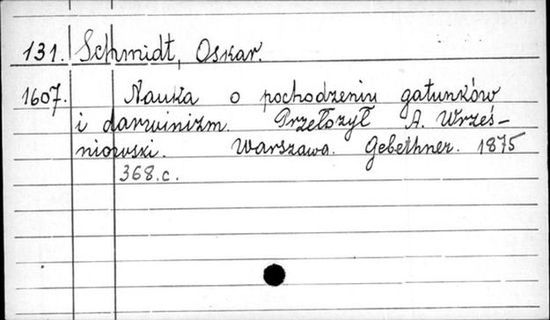 131. Schmidt, Oskar.
1607. Nauka o pochodzeniu gatunków
i darwinizm. Przełożył A. Wrześ-
niowski. Warszawa. Gebethner. 1875
368.c.